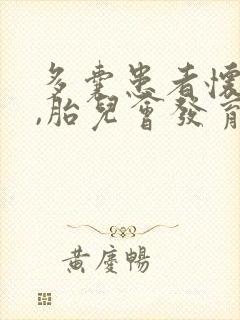 多囊患者懷
,胎兒會發育
黃慶暢